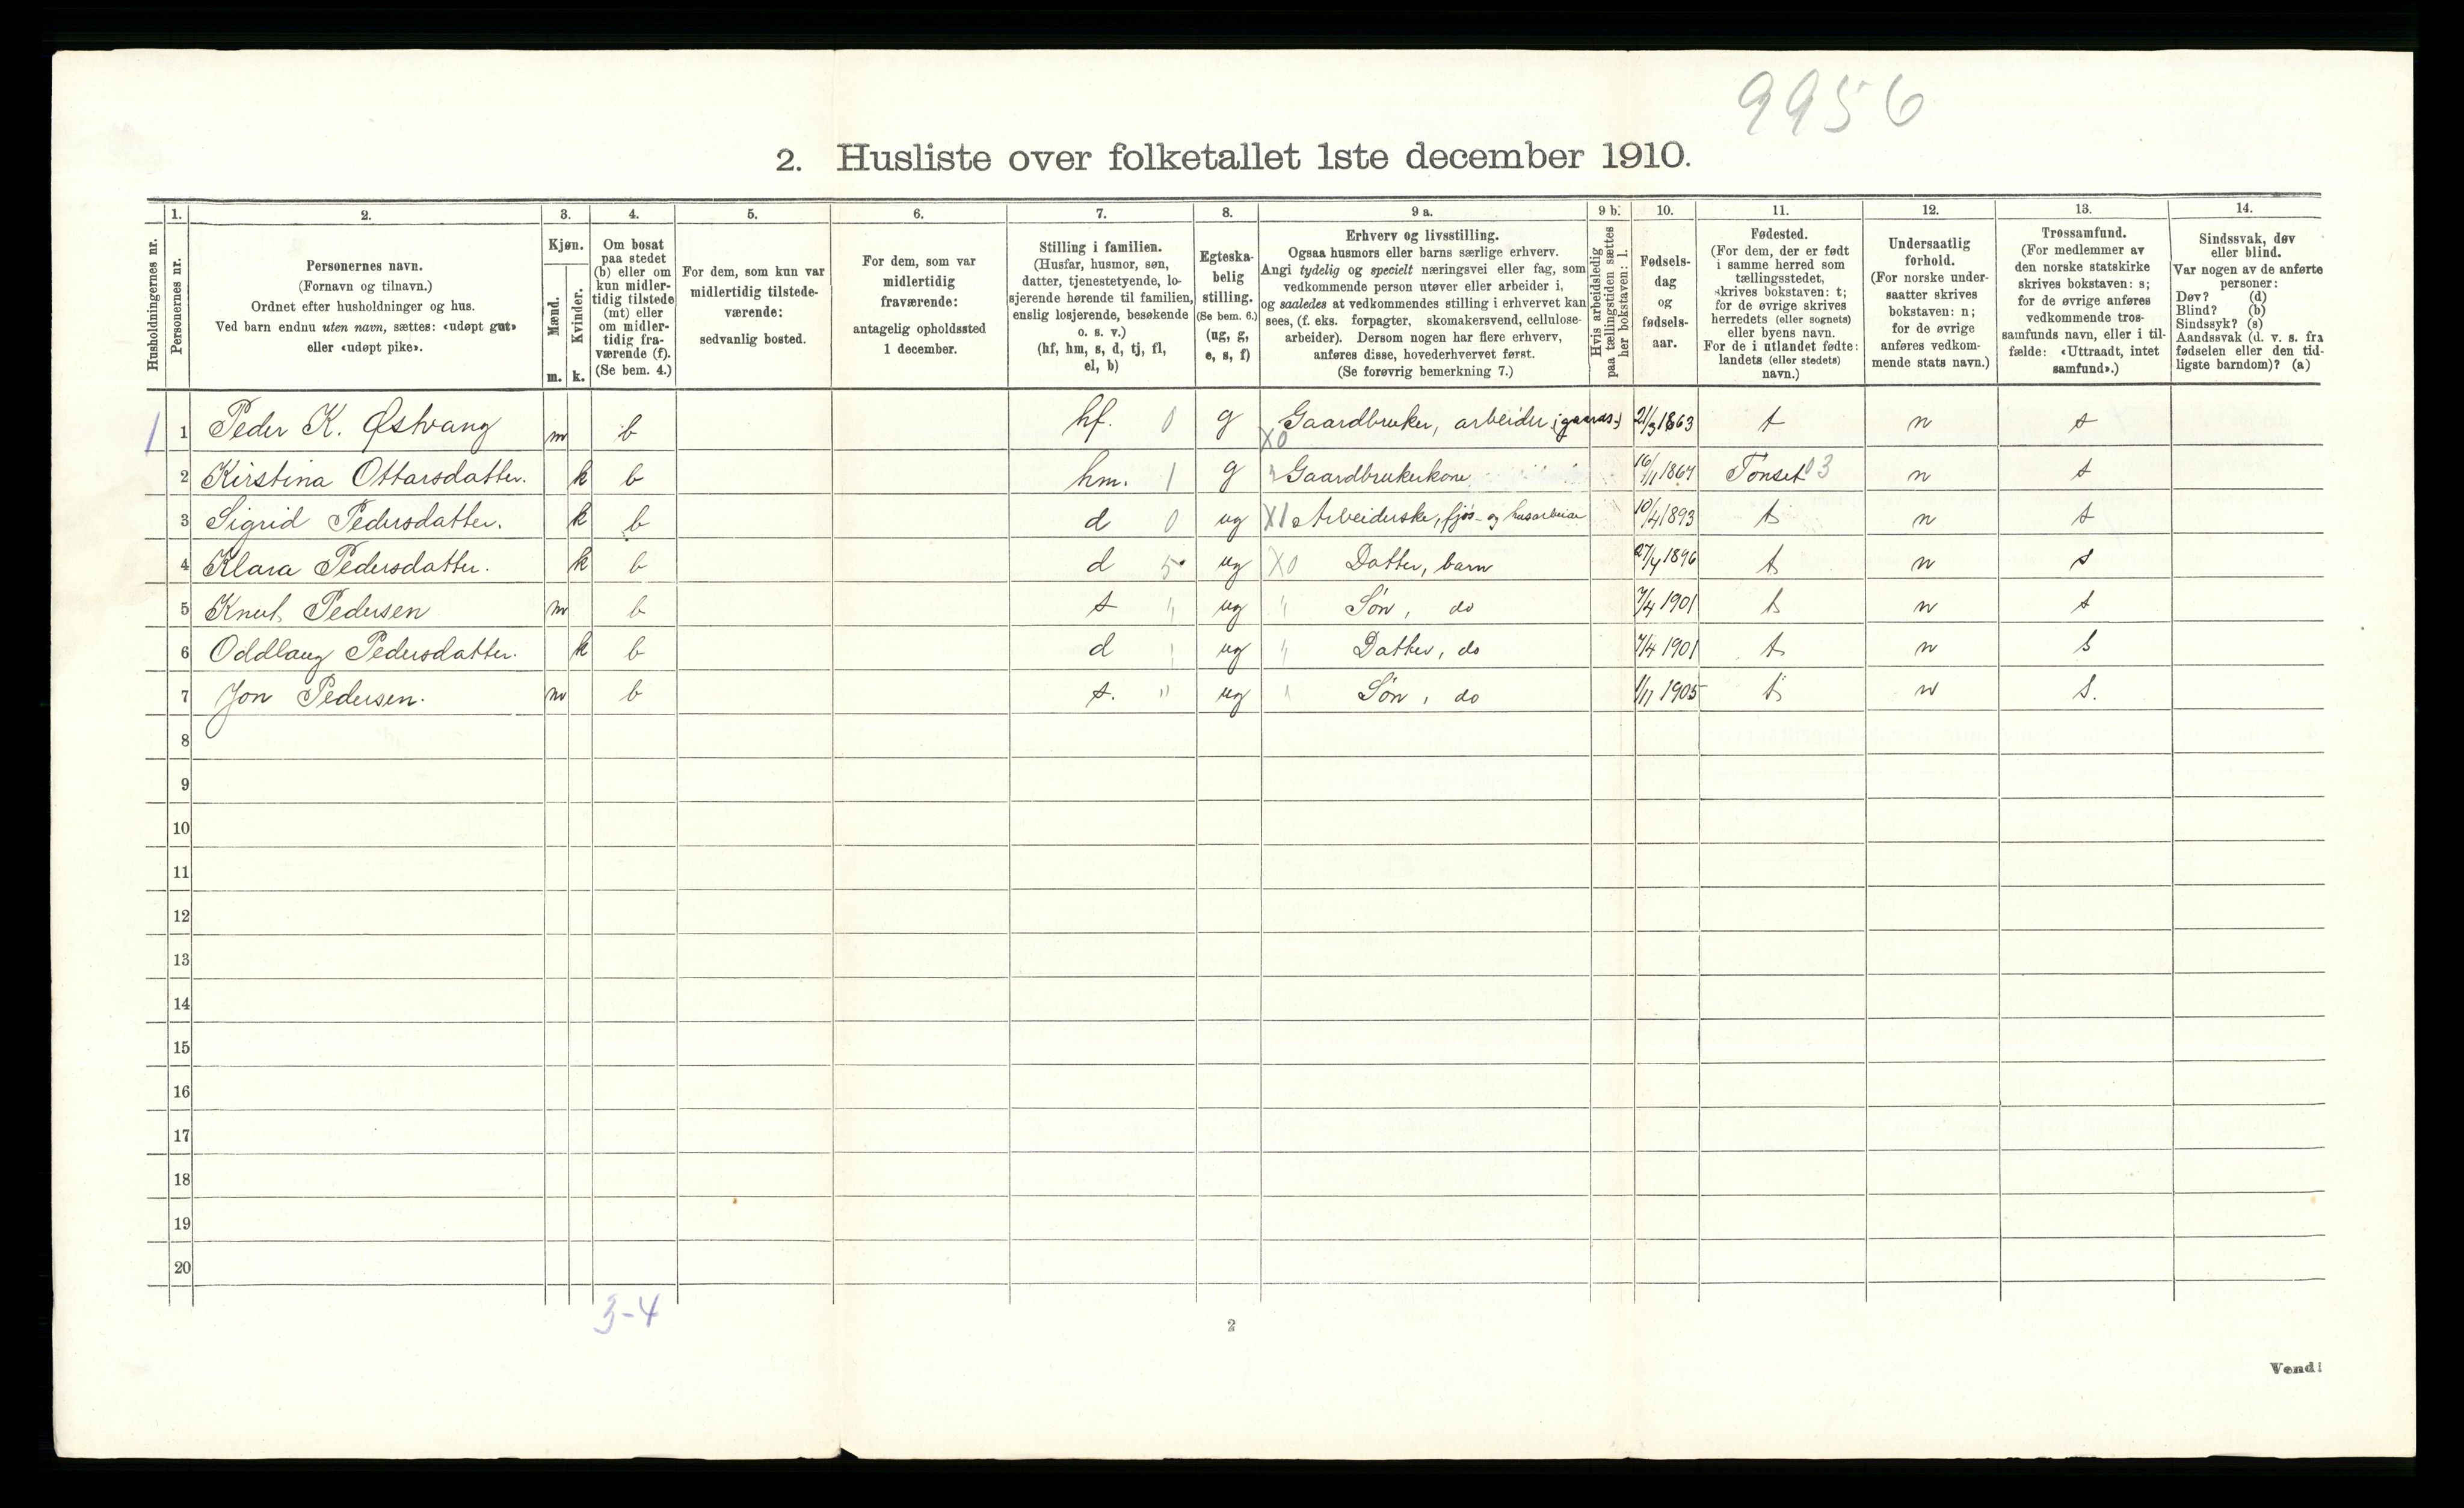 9956
2. Husliste over folketallet 1ste december 1910.
Husholdningernes nr.
1.
Personernes nr.
2.
Personernes navn.
(Fornavn og tilnavn.)
Ordnet efter husholdninger og hus.
Ved barn endnu uten navn, sættes: «udøpt gut»
eller «udøpt pike».
3.
Kjøn.
Mænd.
Kvinder.
m. k.
4.
Om bosat
paa stedet
(b) eller om
kun midler-
tidig tilstede
(mt) eller
om midler-
tidig fra-
værende (f).
(Se bem. 4.)
5.
For dem, som kun var
midlertidig tilstede-
værende:
sedvanlig bosted.
6.
For dem, som var
midlertidig
fraværende:
antagelig opholdssted
1 december.
7.
Stilling i familien.
(Husfar, husmor, søn,
datter, tjenestetyende, lo-
sjerende hørende til familien,
enslig losjerende, besøkende
o. s. v.)
(hf, hm, s, d, tj, fl,
el, b)
8.
Egteska-
belig
stilling.
(Se bem. 6.)
(ug, g,
e, s, f)
9 a.
Erhverv og livsstilling.
Ogsaa husmors eller barns særlige erhverv.
Angi tydelig og specielt næringsvei eller fag, som
vedkommende person utøver eller arbeider i,
og saaledes at vedkommendes stilling i erhvervet kan
sees, (f. eks. forpagter, skomakersvend, cellulose-
arbeider). Dersom nogen har flere erhverv,
anføres disse, hovederhvervet først.
(Se forøvrig bemerkning 7.)
9 b.
Hvis arbeidsledig
paa tællingstiden sættes
her bokstaven: l.
10.
Fødsels-
dag
og
fødsels-
aar.
11.
Fødested.
(For dem, der er født
i samme herred som
tællingsstedet,
skrives bokstaven: t;
for de øvrige skrives
herredets (eller sognets)
eller byens navn.
For de i utlandet fødte:
landets (eller stedets)
navn.)
12.
Undersaatlig
forhold.
(For norske under-
saatter skrives
bokstaven: n;
for de øvrige
anføres vedkom-
mende stats navn.)
13.
Trossamfund.
(For medlemmer av
den norske statskirke
skrives bokstaven: s;
for de øvrige anføres
vedkommende tros-
samfunds navn, eller i til-
fælde: «Uttraadt, intet
samfund».)
14.
Sindssvak, døv
eller blind.
Var nogen av de anførte
personer:
Døv? (d)
Blind? (b)
Sindssyk? (s)
Aandssvak (d. v. s. fra
fødselen eller den tid-
ligste barndom)? (a)
1 1 Peder K. Østvang m b hf. 0 g X0 Gaardbruker, arbeider 21/3 1863 t n s
2 Kirstina Ottarsdatter. k b hm. 1 g Gaardbrukerkone 16/11 1867 Tønset 03 n s
3 Sigrid Pedersdatter. k b d 0 ug X1 Arbeiderske, fjøs- og husarbeide 10/4 1893 t n s
4 Klara Pedersdatter. k b d 5 ug X0 Datter, barn 27/4 1896 t n s
5 Knut Pedersen m b s " ug " Søn, do 7/4 1901 t n s
6 Oddlaug Pedersdatter. k b d " ug " Datter, do 7/4 1901 t n s
7 Jon Pedersen. m b s. " ug " Søn, do 1/11 1905 t n s.
8
9
10
11
12
13
14
15
16
17
18
19
20
3-4
2
Vend!